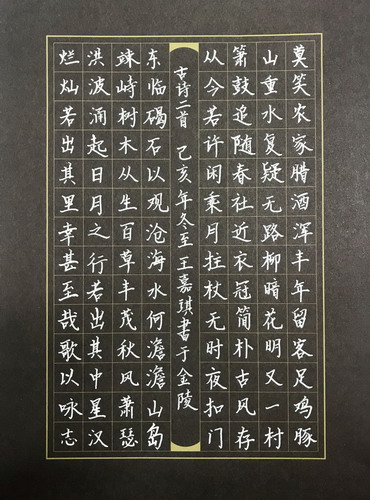 莫笑农家腊酒浑丰年留客足鸡豚
山重水复疑无路柳暗花明又一村
箫鼓追随春社近衣冠简朴古风存
从今若许闲乘月拄杖无时夜扣门
古诗二首 己亥年冬至王嘉琪书于金陵
东临碣石以观沧海水何澹澹山岛
竦峙树木从生百草丰茂秋风萧瑟
洪波涌起日月之行若出其中星汉
烂灿若出其里幸甚至哉歌以咏志